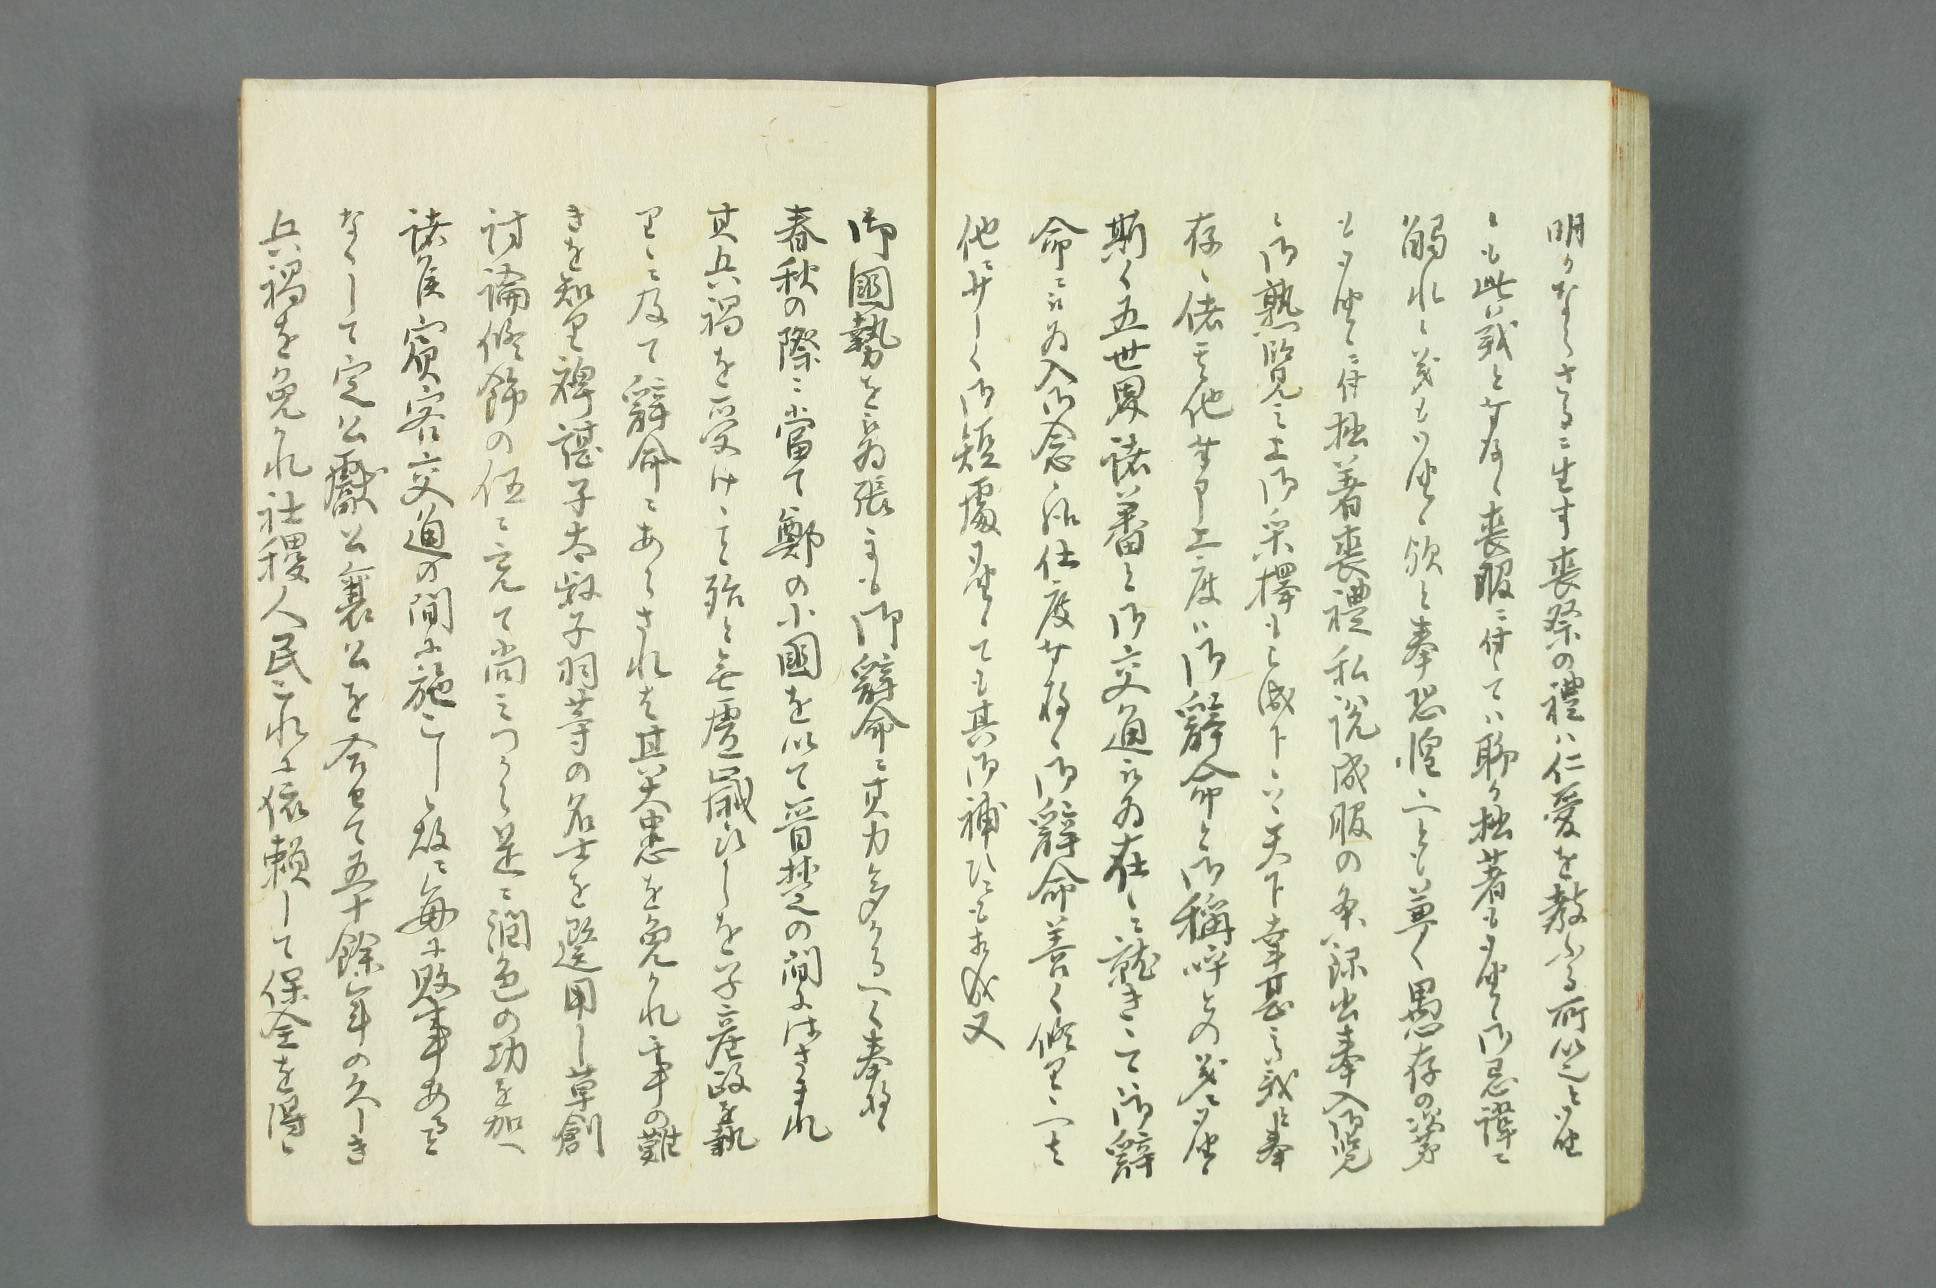 明かならさるに生す喪祭の禮ハ仁愛を教ふる所以と御坐
とも此戎と申なく喪服に付てハ聊か拙著も御坐候御忌諱に
觸れ候義も御坐候欤と奉恐惶候へとも兼く愚存の次第
も御坐候に付拙著喪禮私説成服の条録出奉入御覧
候御熟覧之上御采擇も被成下候ハヽ天下幸甚之義と奉
存候偖又他申上度ハ御辭命と御稱呼との義に御坐候
斯く五世界諸蕃と御交通被為在候に就きてハ御辭
命に被為入御念被仕度奉存候御辭命善く修り候へは
他に少しく御短處御坐候ても其御補ひにも相成又
御國勢を被為張候にも御辭命に其力多かるへく奉存候
春秋の際に當て鄭の小國を以て晋楚の間にはさまれ
其兵禍を受け候こと殆と無虚歳候ひしを子産政を執
り候に及て辭命にあらされは其大患を免かれ候事の難
きを知り裨諶子大叔子羽等の名士を選用し草創
討論修飾の任に充て尚みつから是に潤色の功を加へ
諸侯賓客交通の間に施こし候故に毎に敗事あること
なくして定公獻公襄公を合せて五十餘年の久しき
兵禍を免かれ社稷人民これに依頼して保全を得候